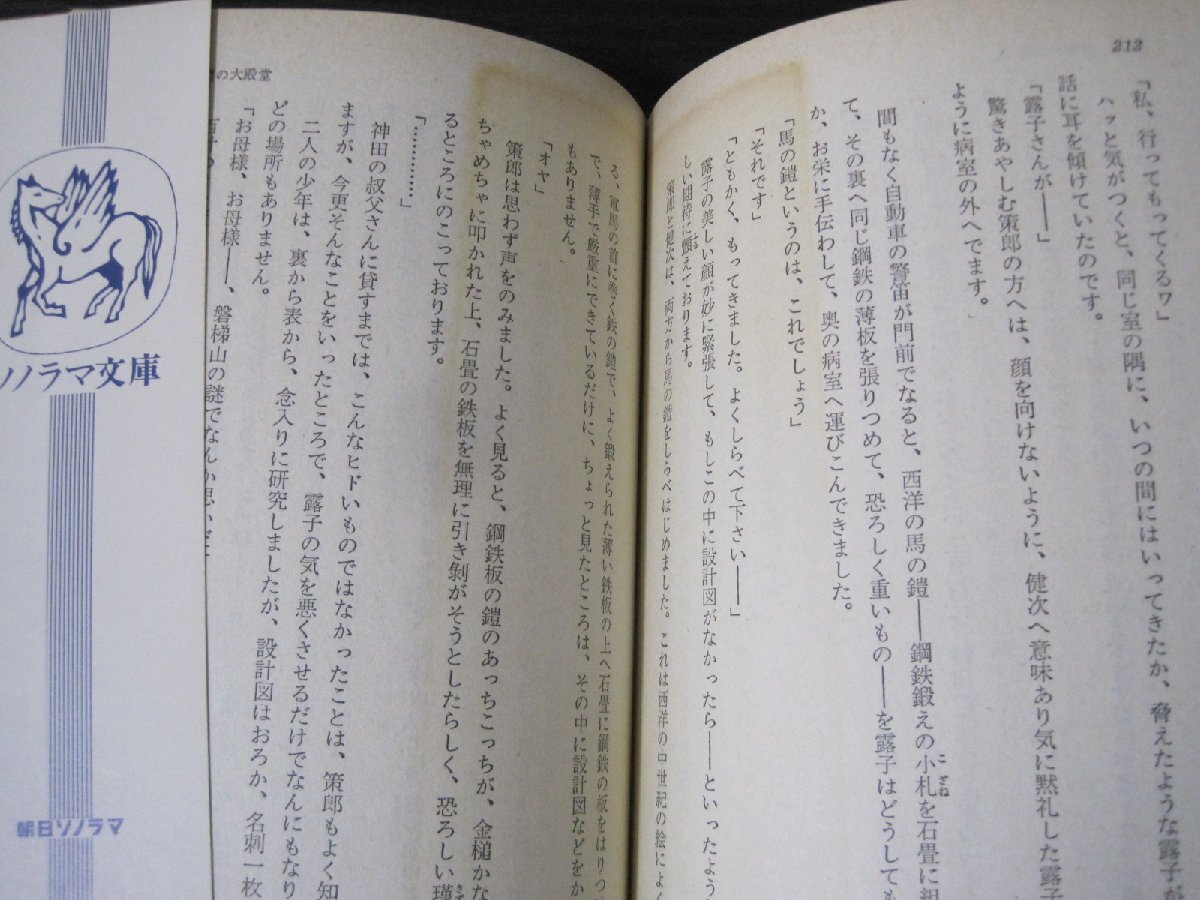 212
「私、行ってもってくるワ」
ハッと気がつくと、同じ室の隅に、いつの間にはいってきたか、脅えたような露子が
話に耳を傾けていたのです。
「露子さんが――」
驚きあやしむ策郎の方へは、顔を向けないように、健次へ意味あり気に黙礼した露子
ように病室の外へでます。
間もなく自動車の警笛が門前でなると、西洋の馬の鎧――鋼鉄鍛えの小札を石畳に組
こざね
て、その裏へ同じ鋼鉄の薄板を張りつめて、恐ろしく重いもの――を露子はどうしても
か、お栄に手伝わして、奥の病室へ運びこんできました。
「馬の鎧というのは、これでしょう」
「それです」
「ともかく、もってきました。よくしらべて下さい――」
露子の美しい顔が妙に緊張して、もしこの中に設計図がなかったら――といったよう
しい期待に顫えております。
策郎と健次は、両方から馬の鎧をしらべはじめました。これは西洋の中世紀の絵によく
の大殿堂
る、軍馬の首に巻く鉄の鎧で、よく鍛えられた薄い鉄板の上へ石畳に鋼鉄の板をはりつ
で、薄手で厳重にできているだけに、ちょっと見たところは、その中に設計図などをか
もありません。
「オヤ」
策郎は思わず声をのみました。よく見ると、鋼鉄板の鎧のあっちこっちが、金槌かな
ちゃめちゃに叩かれた上、石畳の鉄板を無理に引き剝がそうとしたらしく、恐ろしい瑾
るところにのこっております。
「…………」
神田の叔父さんに貸すまでは、こんなヒドいものではなかったことは、策郎もよく知
ますが、今更そんなことをいったところで、露子の気を悪くさせるだけでなんにもなり
二人の少年は、裏から表から、念入りに研究しましたが、設計図はおろか、名刺一枚
どの場所もありません。
「お母様、お母様――、磐梯山の謎でなんか思い
ソノラマ文庫
朝日ソノラマ